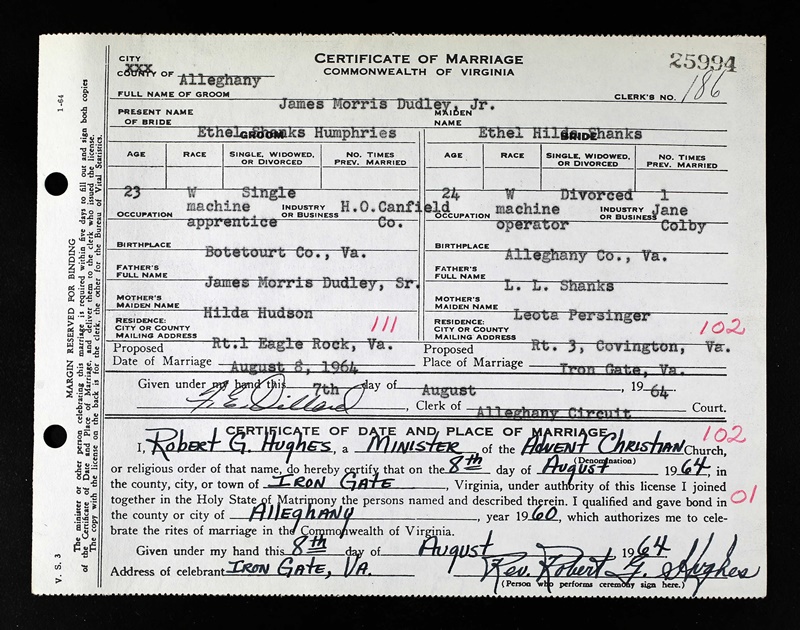 CERTIFICATE OF MARRIAGE
COMMONWEALTH OF VIRGINIA
25994
CITY
XXX
COUNTY OF Alleghany
CLERK'S NO. 186
FULL NAME OF GROOM James Morris Dudley, Jr.
PRESENT NAME OF BRIDE Ethel Shanks Humphries MAIDEN NAME Ethel Hilda Shanks
GROOM BRIDE
AGE RACE SINGLE, WIDOWED, OR DIVORCED NO. TIMES PREV. MARRIED AGE RACE SINGLE, WIDOWED, OR DIVORCED NO. TIMES PREV. MARRIED
23 W Single 24 W Divorced 1
OCCUPATION machine apprentice INDUSTRY OR BUSINESS H.O.Canfield Co. OCCUPATION machine operator INDUSTRY OR BUSINESS Jane Colby
BIRTHPLACE Botetourt Co., Va. BIRTHPLACE Alleghany Co., Va.
FATHER'S FULL NAME James Morris Dudley, Sr. FATHER'S FULL NAME L. L. Shanks
MOTHER'S MAIDEN NAME Hilda Hudson MOTHER'S MAIDEN NAME Leota Persinger
RESIDENCE: CITY OR COUNTY MAILING ADDRESS 111 Rt.1 Eagle Rock, Va. RESIDENCE: CITY OR COUNTY MAILING ADDRESS 102 Rt. 3, Covington, Va.
Proposed Date of Marriage August 8, 1964 Proposed Place of Marriage Iron Gate, Va.
Given under my hand this 7th day of August, 1964
F E Dillard, Clerk of Alleghany Circuit Court.
CERTIFICATE OF DATE AND PLACE OF MARRIAGE 102
I, ROBERT G. HUGHES, a MINISTER of the ADVENT CHRISTIAN Church,
(Denomination)
or religious order of that name, do hereby certify that on the 8th day of AUGUST 1964, in
the county, city, or town of IRON GATE, Virginia, under authority of this license I joined
together in the Holy State of Matrimony the persons named and described therein. I qualified and gave bond in 01
the county or city of ALLEGHANY, year 1960, which authorizes me to cele-
brate the rites of marriage in the Commonwealth of Virginia.
Given under my hand this 8th day of AUGUST 1964.
Address of celebrant IRON GATE, VA. Rev. Robert G. Hughes
(Person who performs ceremony sign here.)
1-64
MARGIN RESERVED FOR BINDING
The minister or other person celebrating this marriage is required within five days to fill out and sign both copies
of the Certificate of Date and Place of Marriage, and deliver them to the clerk who issued the license.
The copy with the license on the back is for the clerk, the other for the Bureau of Vital Statistics.
V. S. 3